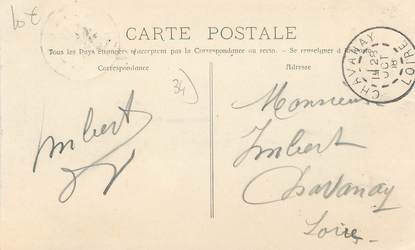 lot
CARTE POSTALE
Tous les Pays étrangers n'acceptent pas la Correspondance au recto. — Se renseigner à la
Correspondance
Adresse
34
CHAVANAY
LOIRE
28
OCT
Monsieur
Imbert
Chavanay
Loire
Imbert